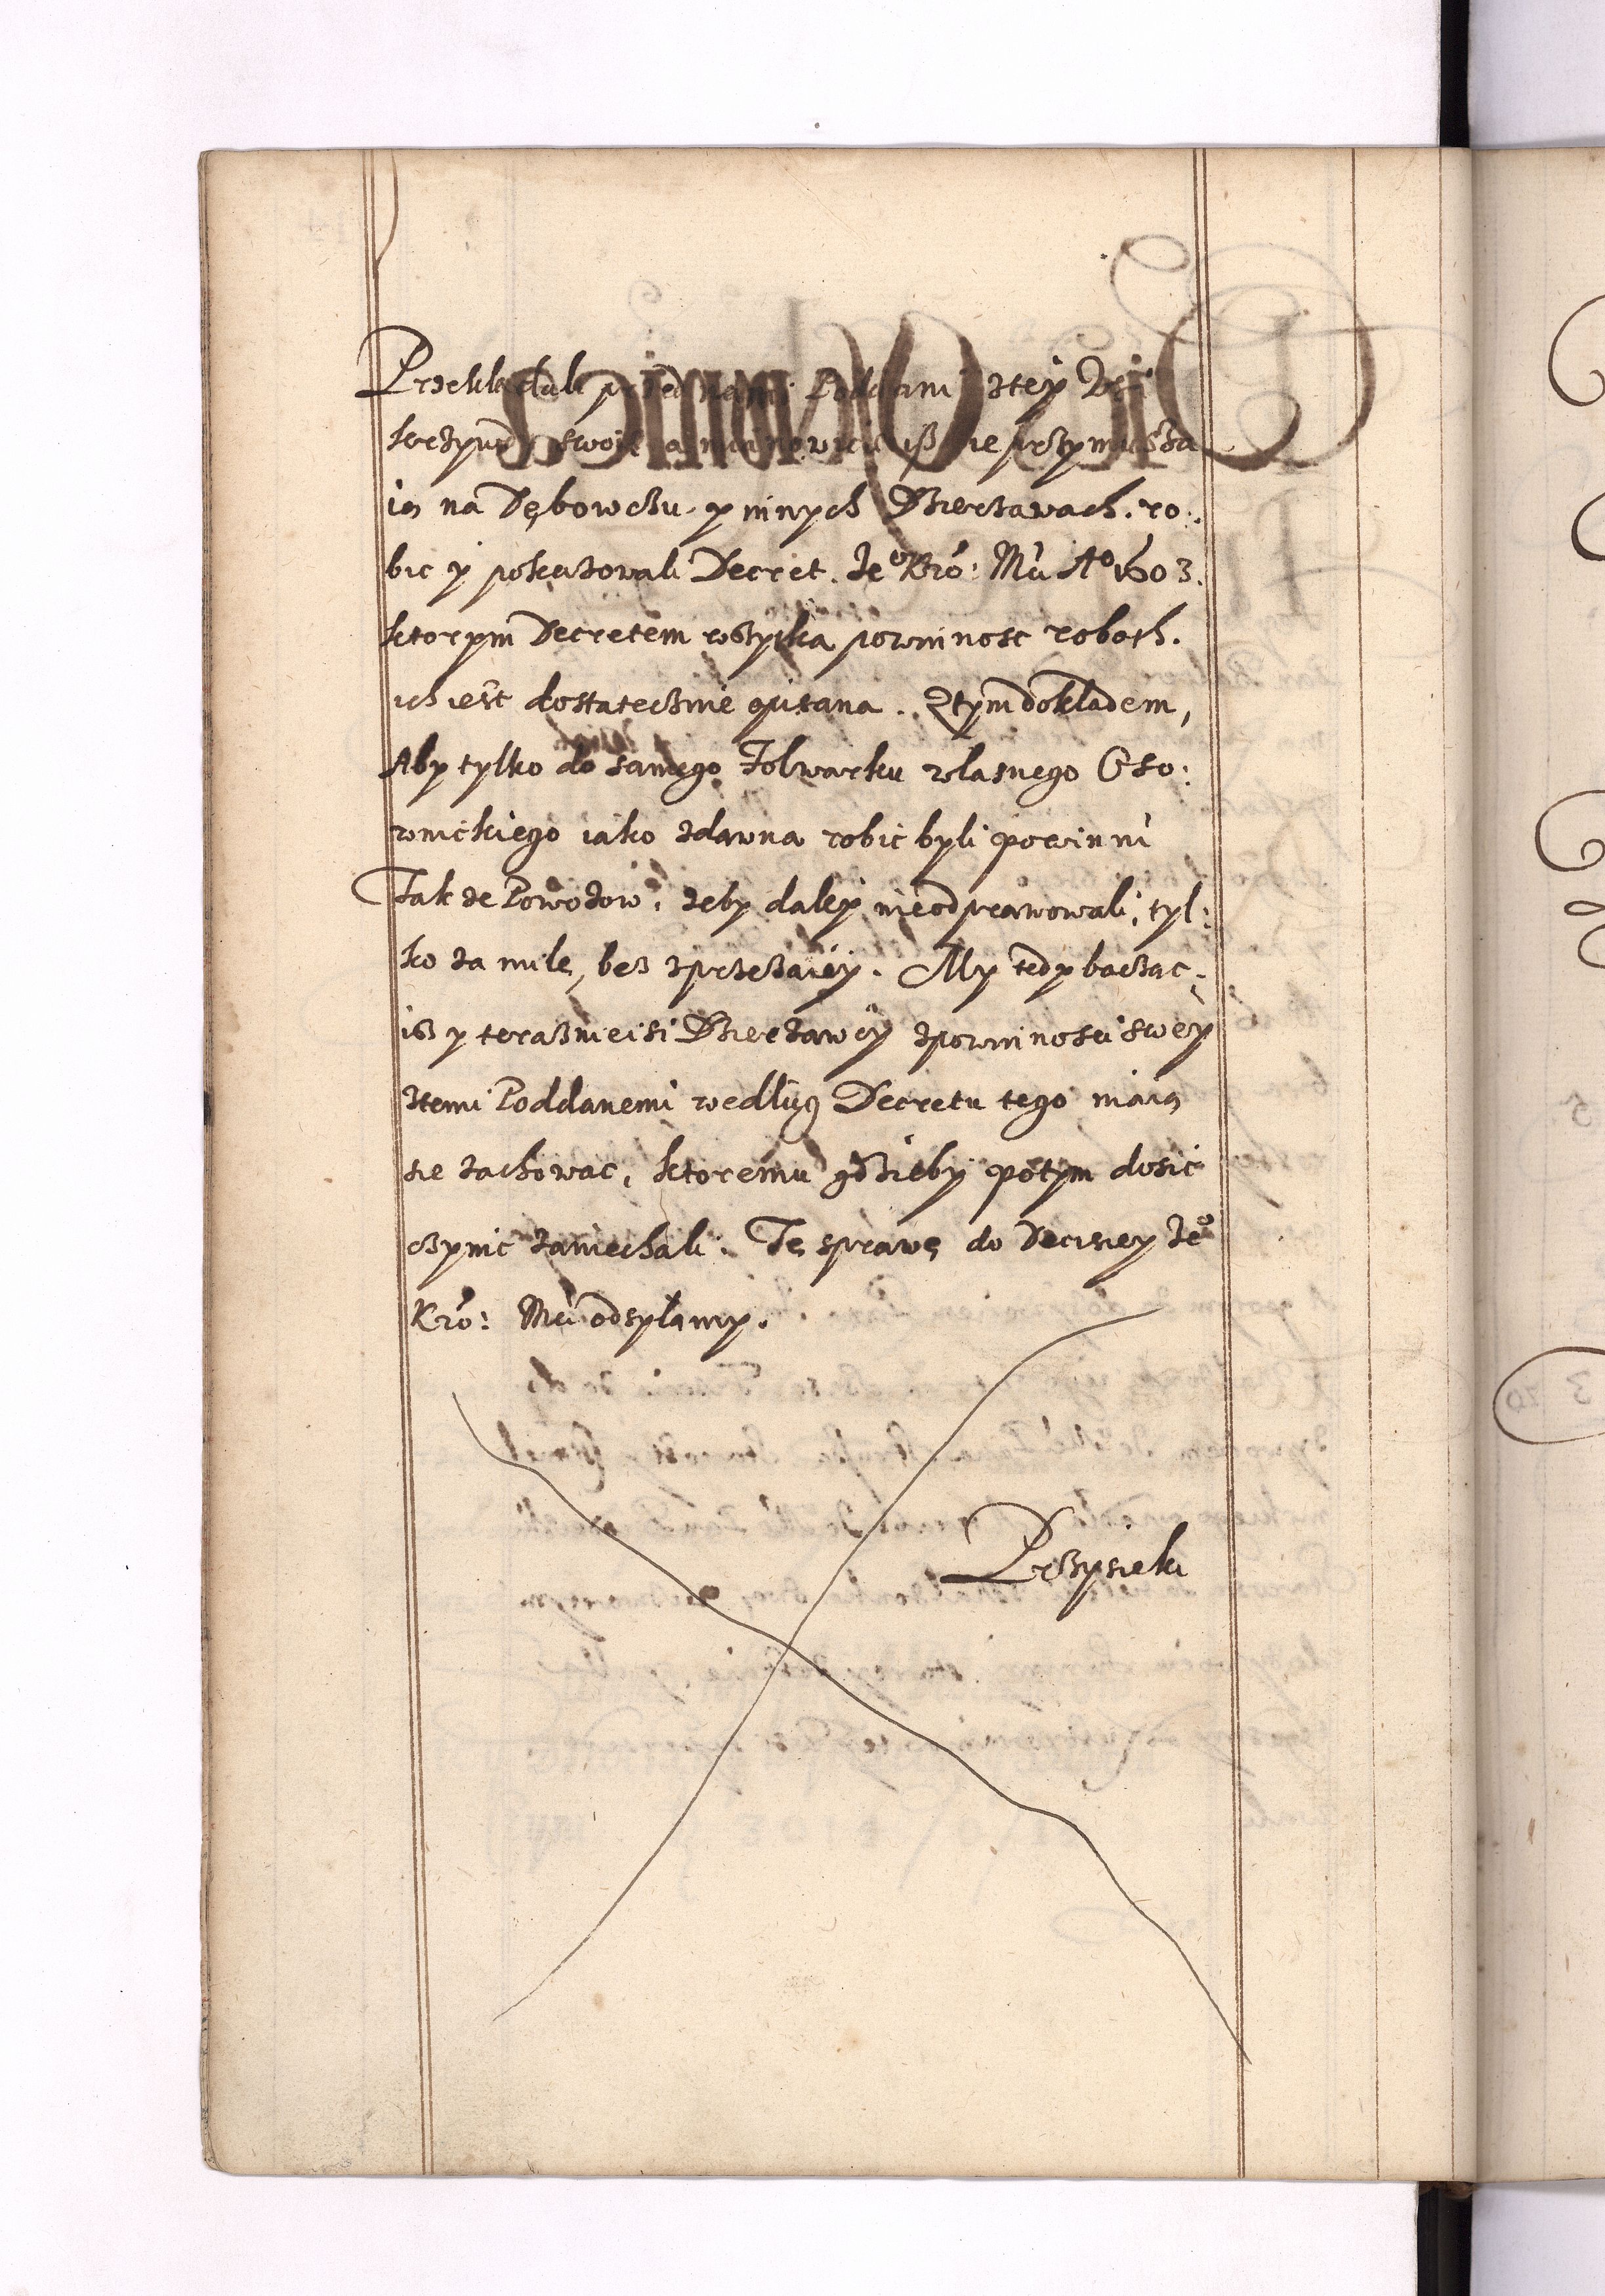 Przekładali przed nami Poddani ztey Wsi
krzywdy swoie a mianowicie iß ie przymusza
ią na Dębowcżu y innych Dzierżawach. ro:
bic y pokazowali Decret. Je⁰ Kro: Mći A⁰ 1603.
ktorym Decretem wszytka powinnosc robot.
ich iest dostatecżnie opisana. Ztym dokładem,
Aby tylko do samego Folwarku własnego Oso:
wnickiego iako zdawna robic byli powinni
Tak ze Powozow. zeby daley nieodprawowali, tyl:
ko za mile, bes zprzezaiey. My tedy bacżąc.
iß y teraßnieisi Dzierzawcy zpowinnosci swey
ztemi Poddanemi według Decretu tego maią
sie zachowac, ktoremu gdzieby potym dosic
cżynic zaniechali. Tę sprawę do Decisiey Je⁰
Kro: Mći odsyłamy.
Przysieki